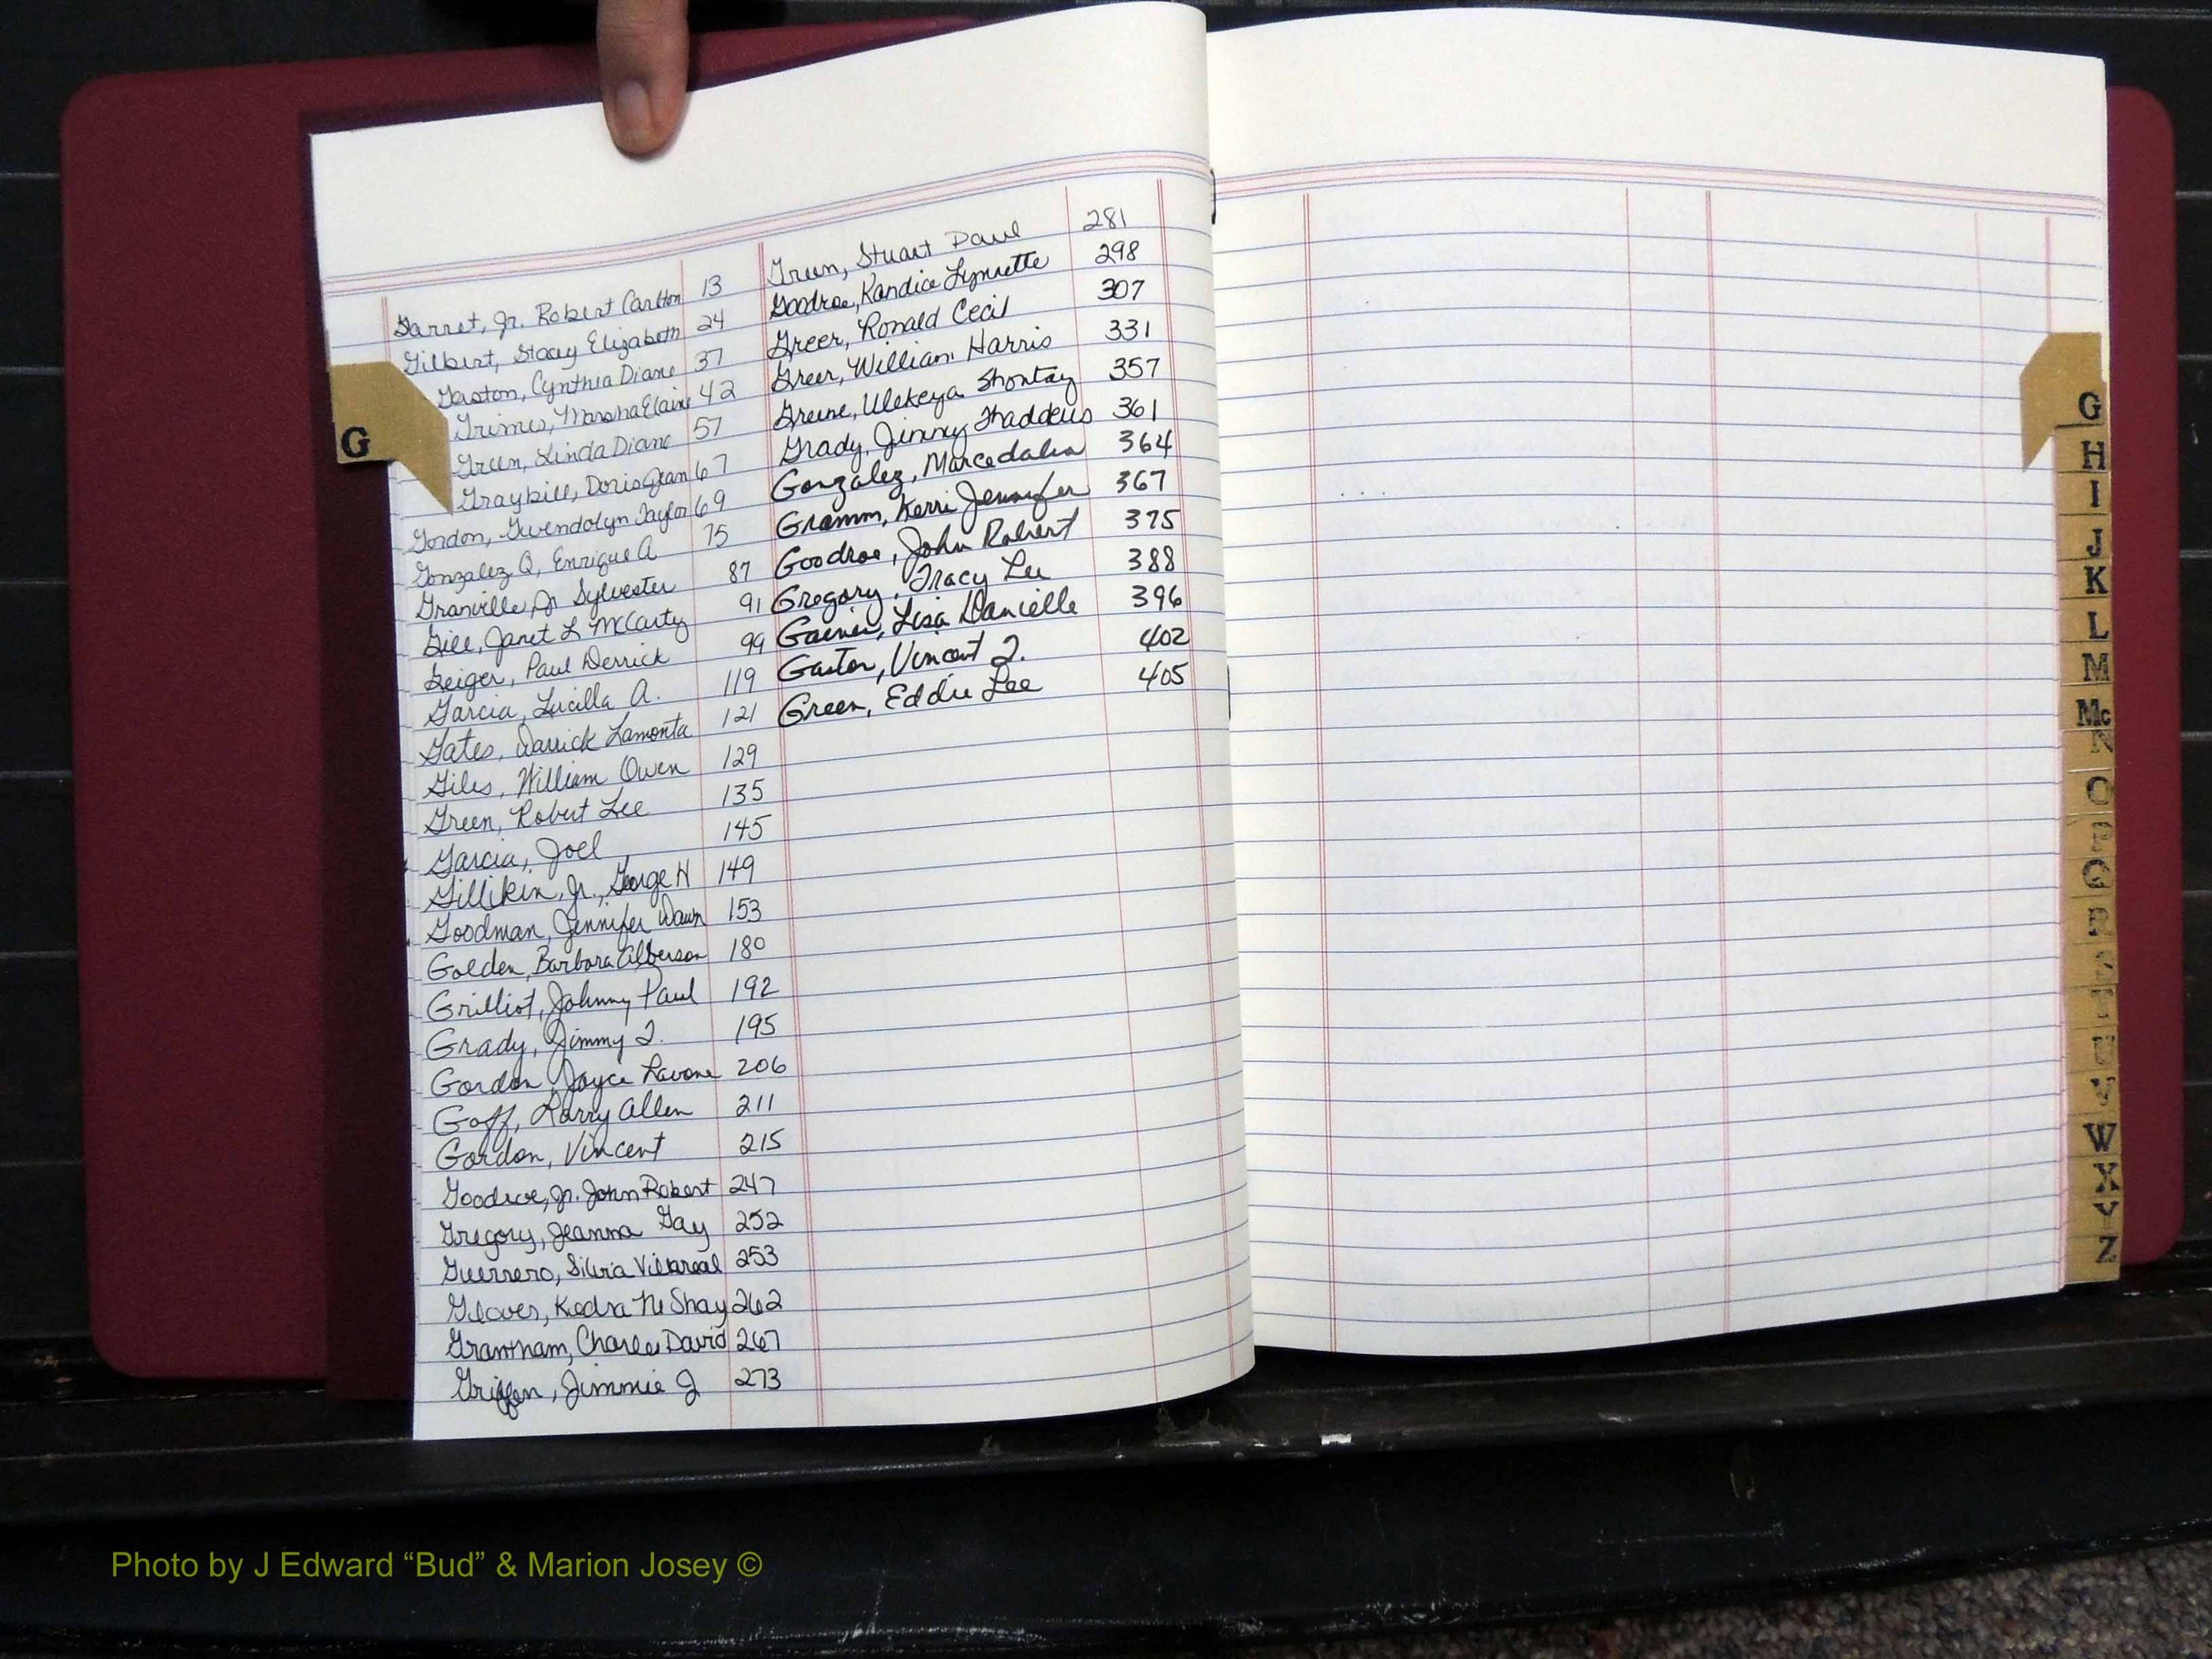 Garret, Jr. Robert Carlton 13
Gilbert, Stacy Elizabeth 24
Gaston, Cynthia Diane 37
Grimes, Marsha Elaine 42
Green, Linda Diane 57
Graybill, Doris Jean 67
Gordon, Gwendolyn Taylor 69
Gonzalez Q, Enrique A 75
Granville, Jr Sylvester 87
Gill, Janet L McCarty 91
Geiger, Paul Derrick 99
Garcia, Lucilla A. 119
Gates, Warrick Lamonta 121
Giles, William Owen 129
Green, Robert Lee 135
Garcia, Joel 145
Gillikin, Jr., George H 149
Goodman, Jennifer Dawn 153
Golden, Barbara Alberson 180
Grilliot, Johnny Paul 192
Grady, Jimmy J. 195
Gordon, Joyce Lavone 206
Goff, Larry Allen 211
Gordon, Vincent 215
Goodroe, Jr. John Robert 247
Gregory, Jeanna Gay 252
Guerrero, Silvia Villareal 253
Glover, Kedra Ne Shay 262
Grantham, Charles David 267
Griffen, Jimmie J 273
Green, Stuart Paul 281
Goodroe, Kandice Lynnette 298
Greer, Ronald Cecil 307
Greer, William Harris 331
Greene, Ulekeya Shontay 357
Grady, Jimmy Thaddeus 361
Gonzalez, Marcedalia 364
Gramm, Kerri Jennifer 367
Goodroe, John Robert 375
Gregory, Tracy Lee 388
Gainer, Lisa Danielle 396
Gaston, Vincent J. 402
Green, Eddie Lee 405
G
G
H
I
J
K
L
M
Mc
N
O
P
Q
R
S
T
U
V
W
X
Y
Z
Photo by J Edward “Bud” & Marion Josey ©